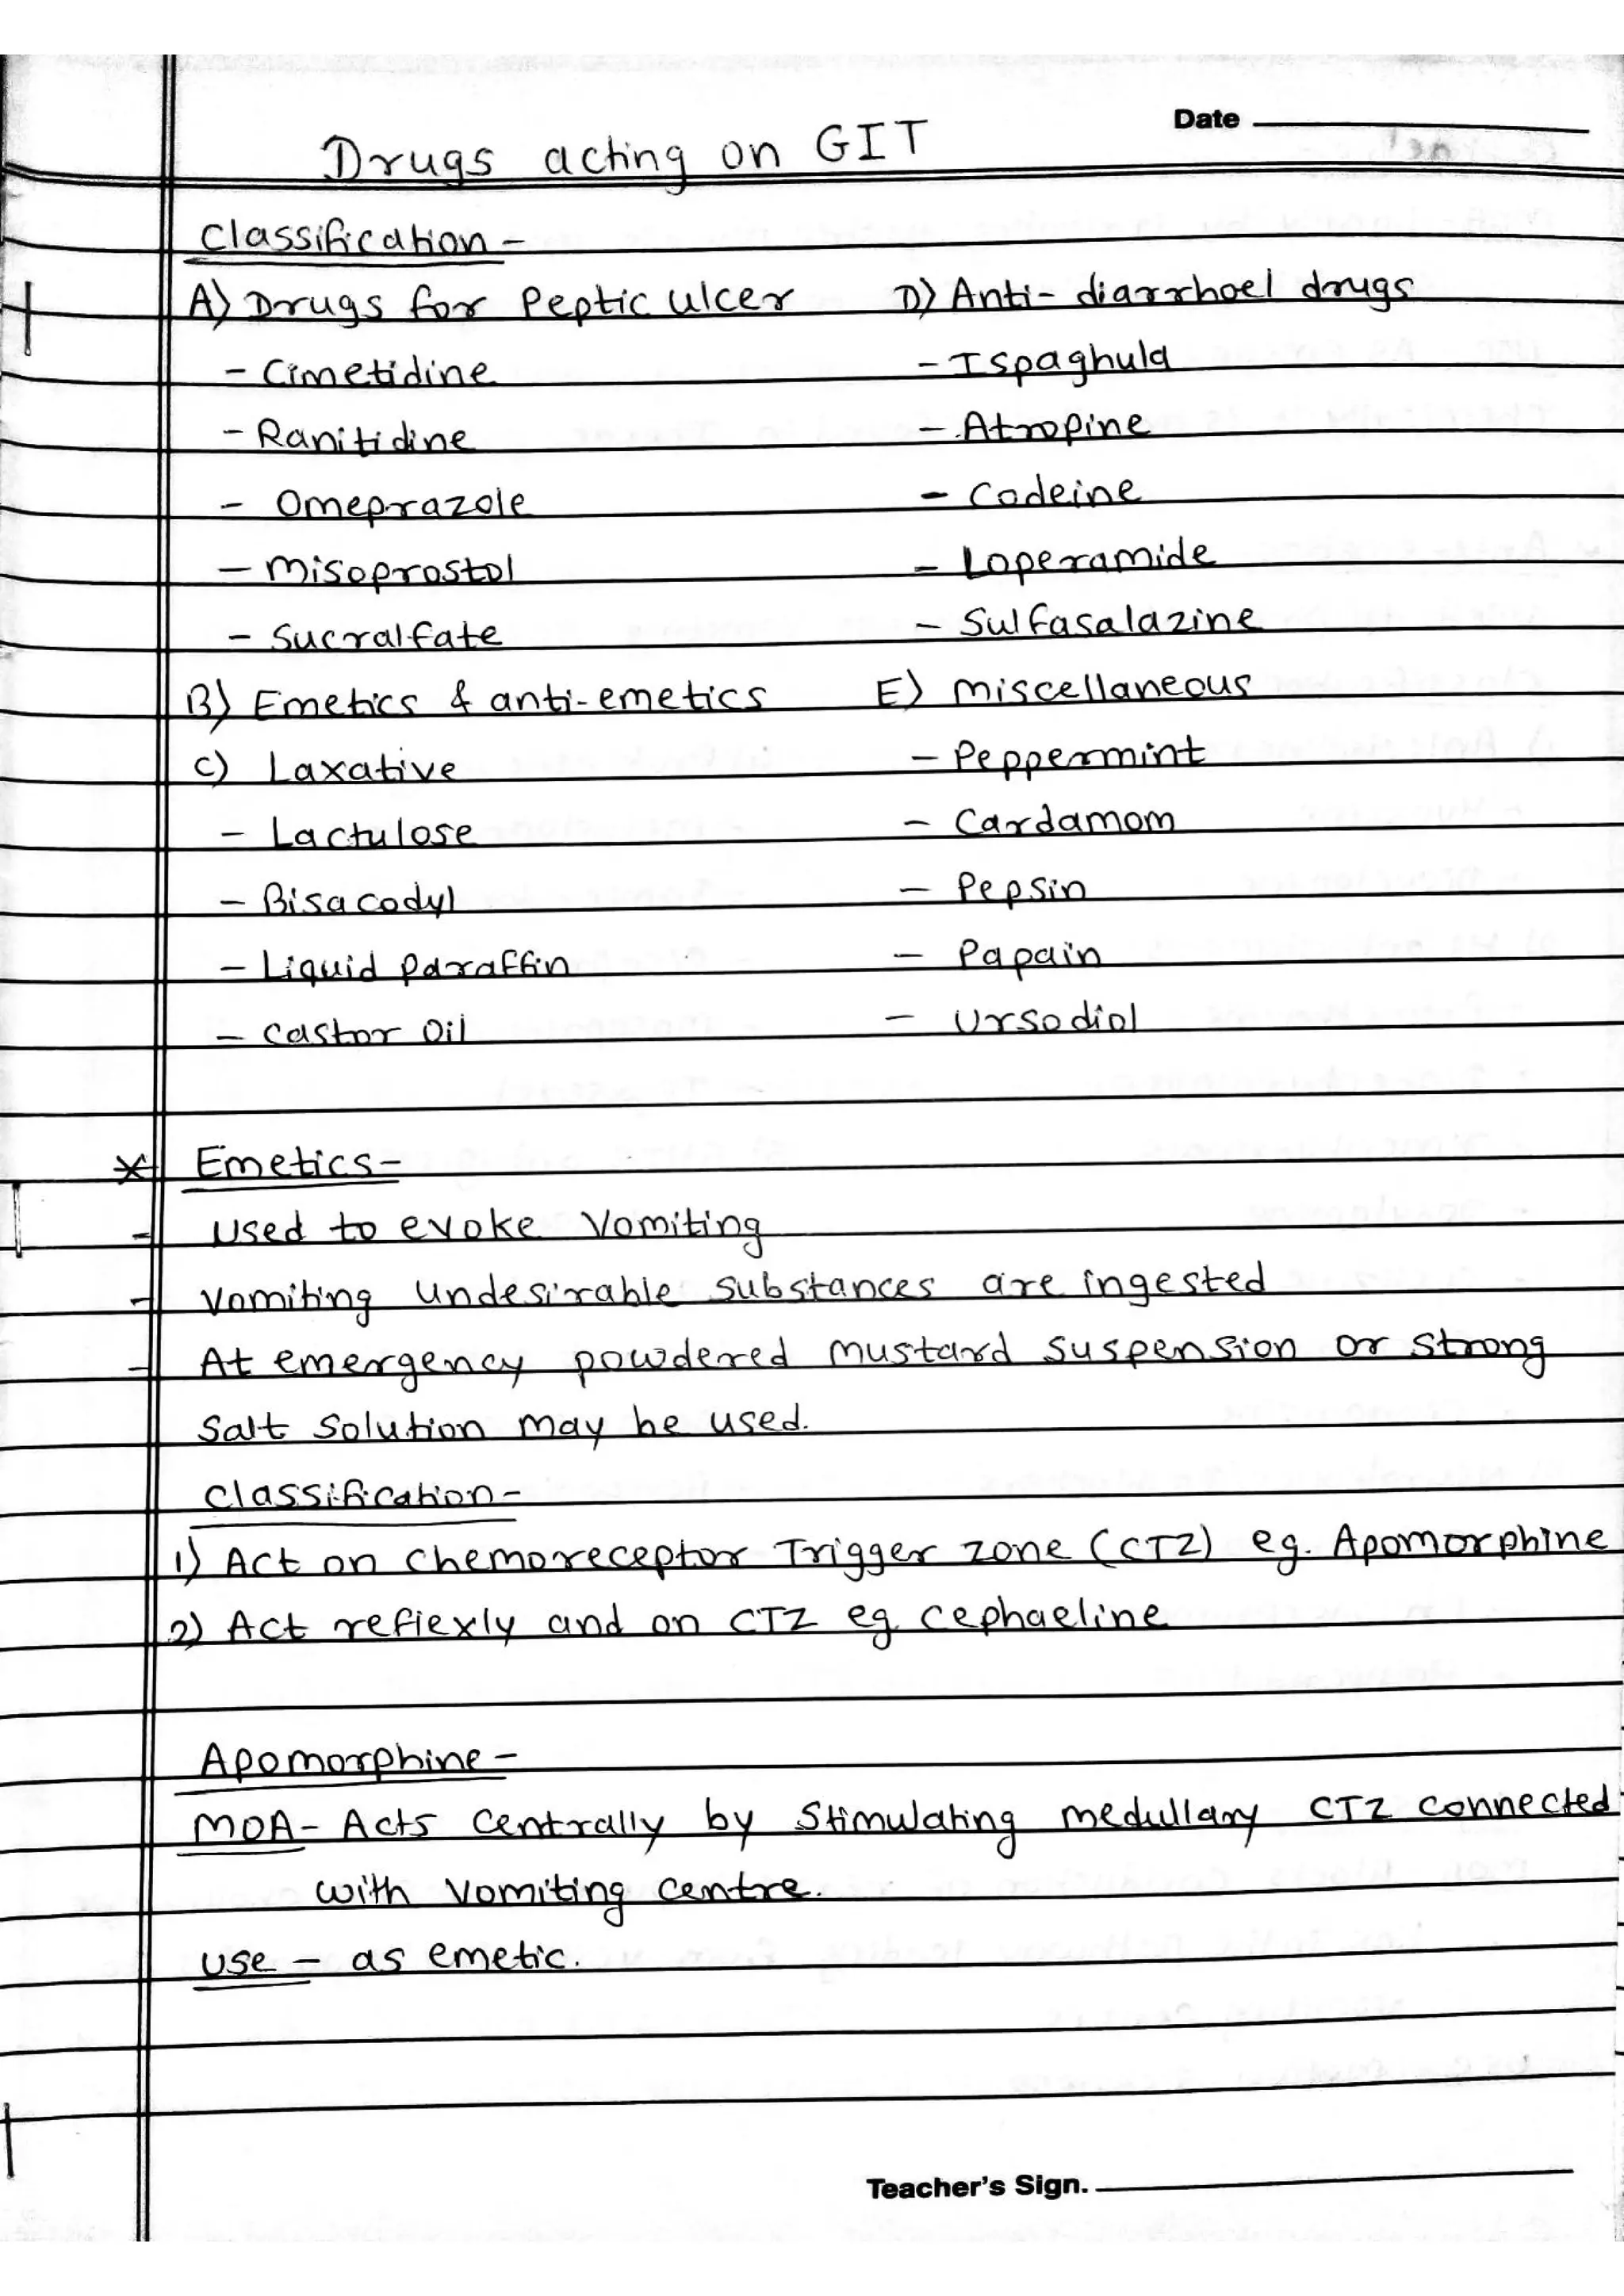 Date
Drugs acting on GIT
Classification -
A) Drugs for Peptic ulcer
- Cimetidine
- Ranitidine
- Omeprazole
- Misoprostol
- Sucralfate
B) Emetics & anti-emetics
C) Laxative
- Lactulose
- Bisacodyl
- Liquid paraffin
- Castor Oil
D) Anti-diarrhoel drugs
- Ispaghula
- Atropine
- Codeine
- Loperamide
- Sulfasalazine
E) Miscellaneous
- Peppermint
- Cardamom
- Pepsin
- Papain
- Ursodiol
* Emetics -
- Used to evoke Vomiting
- Vomiting undesirable substances are ingested
- At emergency powdered mustard suspension or strong
salt solution may be used.
Classification -
1) Act on Chemoreceptor Trigger zone (CTZ) eg. Apomorphine
2) Act reflexly and on CTZ eg. Cephaeline
Apomorphine -
MOA - Acts centrally by stimulating medullary CTZ connected
with vomiting centre.
use - as emetic.
Teacher's Sign.